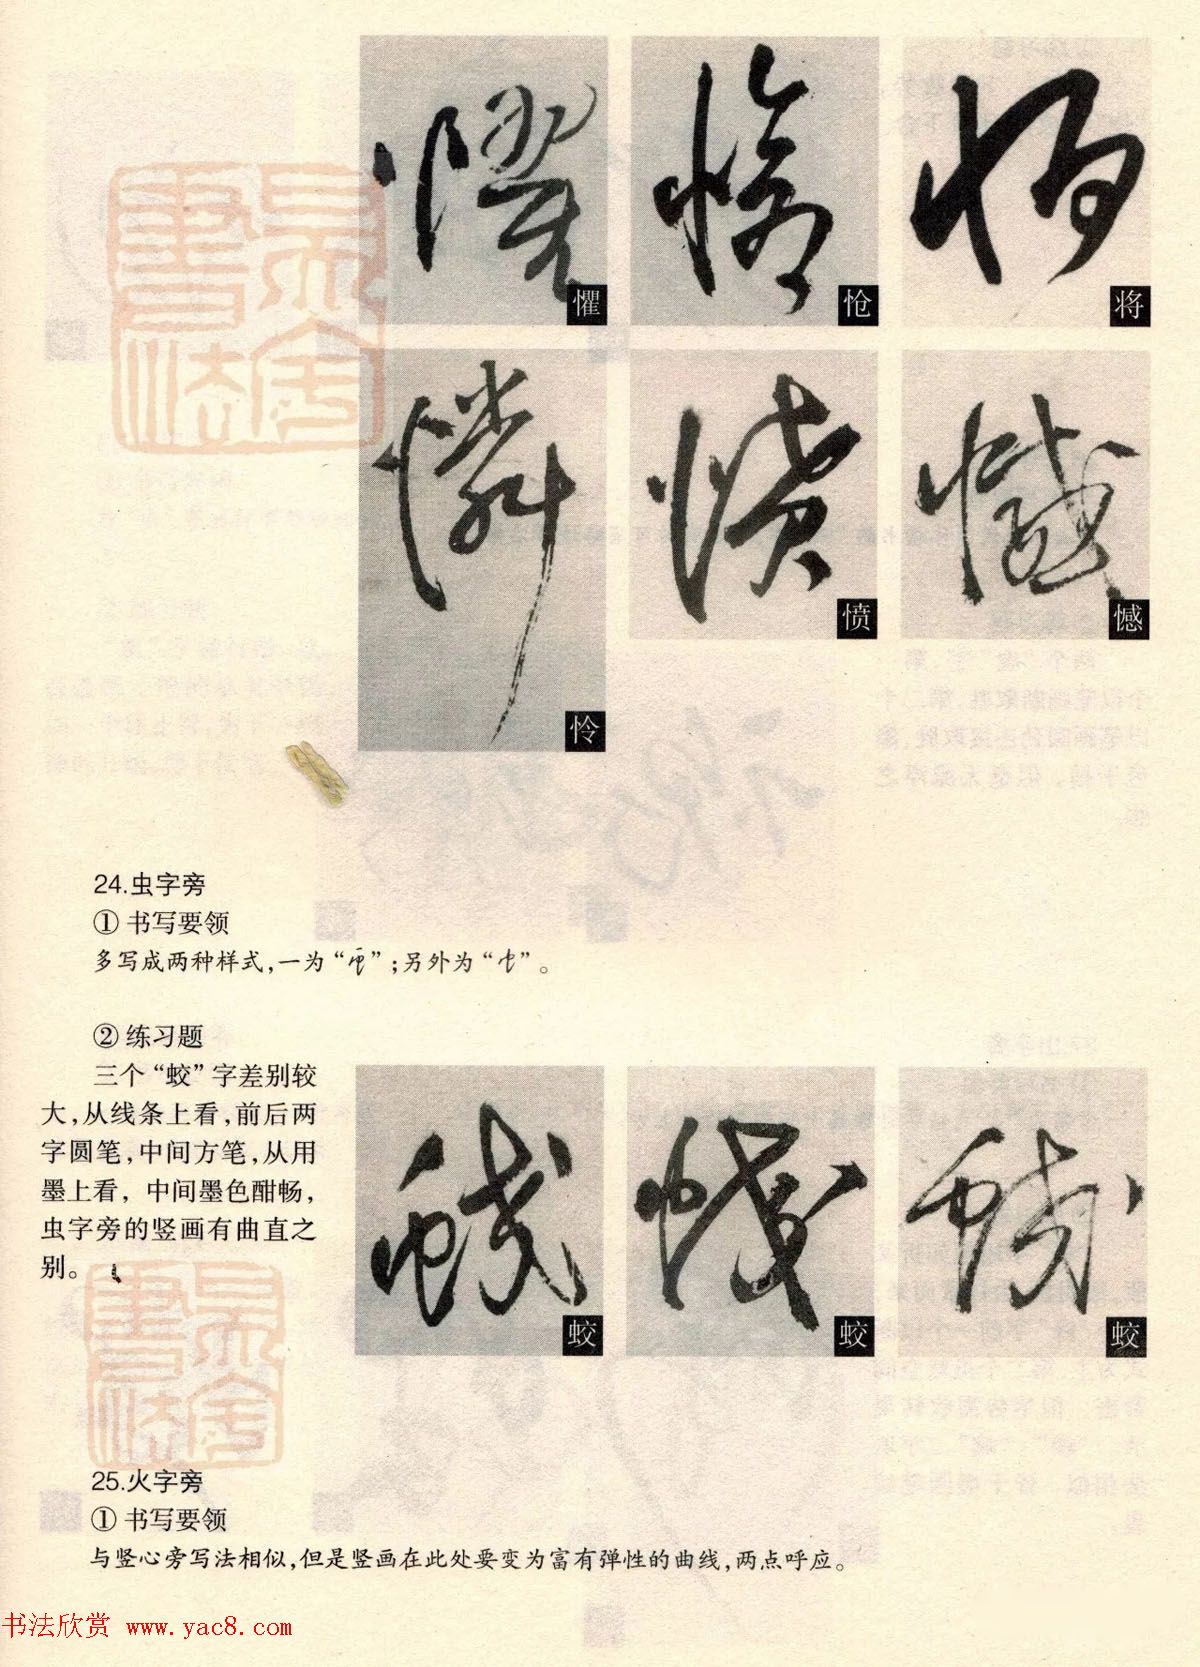 懼
怆
将
怜
愤
憾
24.虫字旁
① 书写要领
多写成两种样式,一为“ ”;另外为“ ”。
② 练习题
三个“蛟”字差别较
大,从线条上看,前后两
字圆笔,中间方笔,从用
墨上看, 中间墨色酣畅,
虫字旁的竖画有曲直之
别。
蛟
蛟
蛟
25.火字旁
① 书写要领
与竖心旁写法相似,但是竖画在此处要变为富有弹性的曲线,两点呼应。
书法欣赏 www.yac8.com